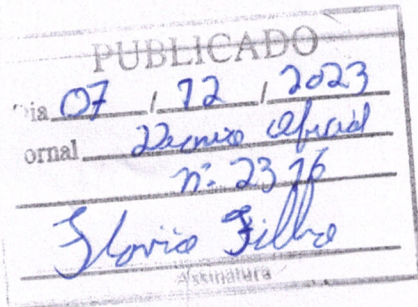 PUBLICADO
Dia 07 / 12 / 2023
ornal Diário Oficial
nº 2376
Flavio Filho
Assinatura